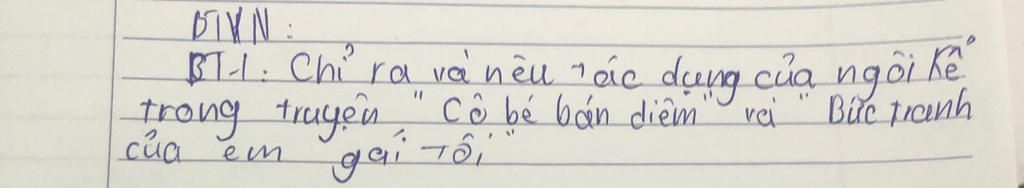 BTVN:
BT1: Chỉ ra và nêu tác dụng của ngôi kể
trong truyện "Cô bé bán diêm" và "Bức tranh
của em gái tôi"